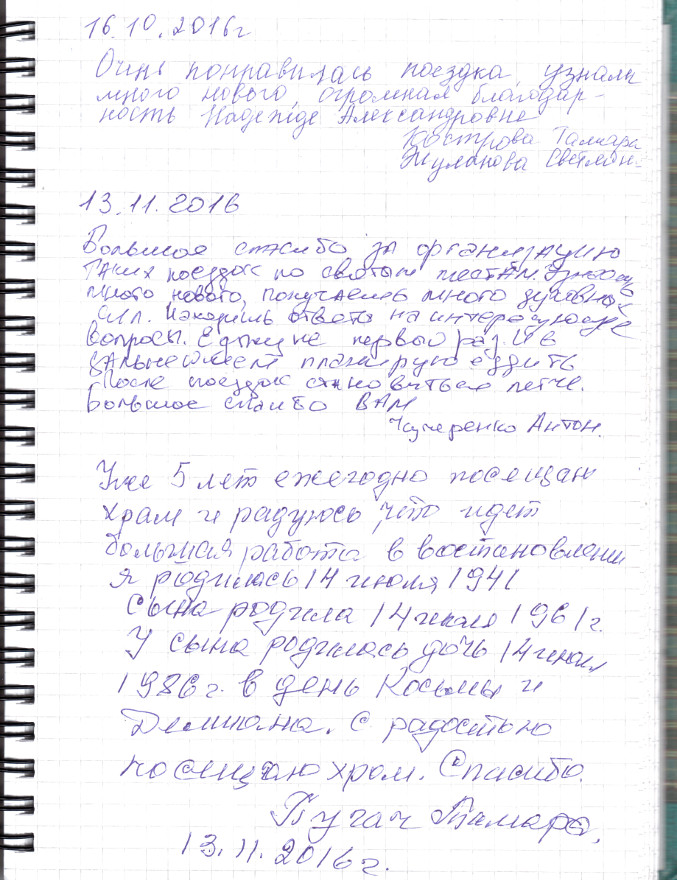 16.10.2016г
Очень понравилась поездка, узнали
много нового, огромная благодар-
ность Надежде Александровне
Кострова Тамара
Жуланова Светлан.
13.11.2016
Большое спасибо за организацию
таких поездок по святым местам. Узнаешь
много нового, получаешь много духовных
сил. Находишь ответы на интересующие
вопросы. Езжу не первый раз. И в
дальнейшем планирую ездить
После поездок становиться легче.
Большое спасибо ВАМ
Антон.
Уже 5 лет ежегодно посещаю
храм и радуюсь, что идет
большая работа в востановлении
я родилась 14 июля 1941
сына родила 14 июля 1961г.
У сына родилась дочь 14 июля
1986г. в день Косьмы и
Демиана. С радостью
посещаю храм. Спасибо.
Пугач Тамара.
13.11.2016г.